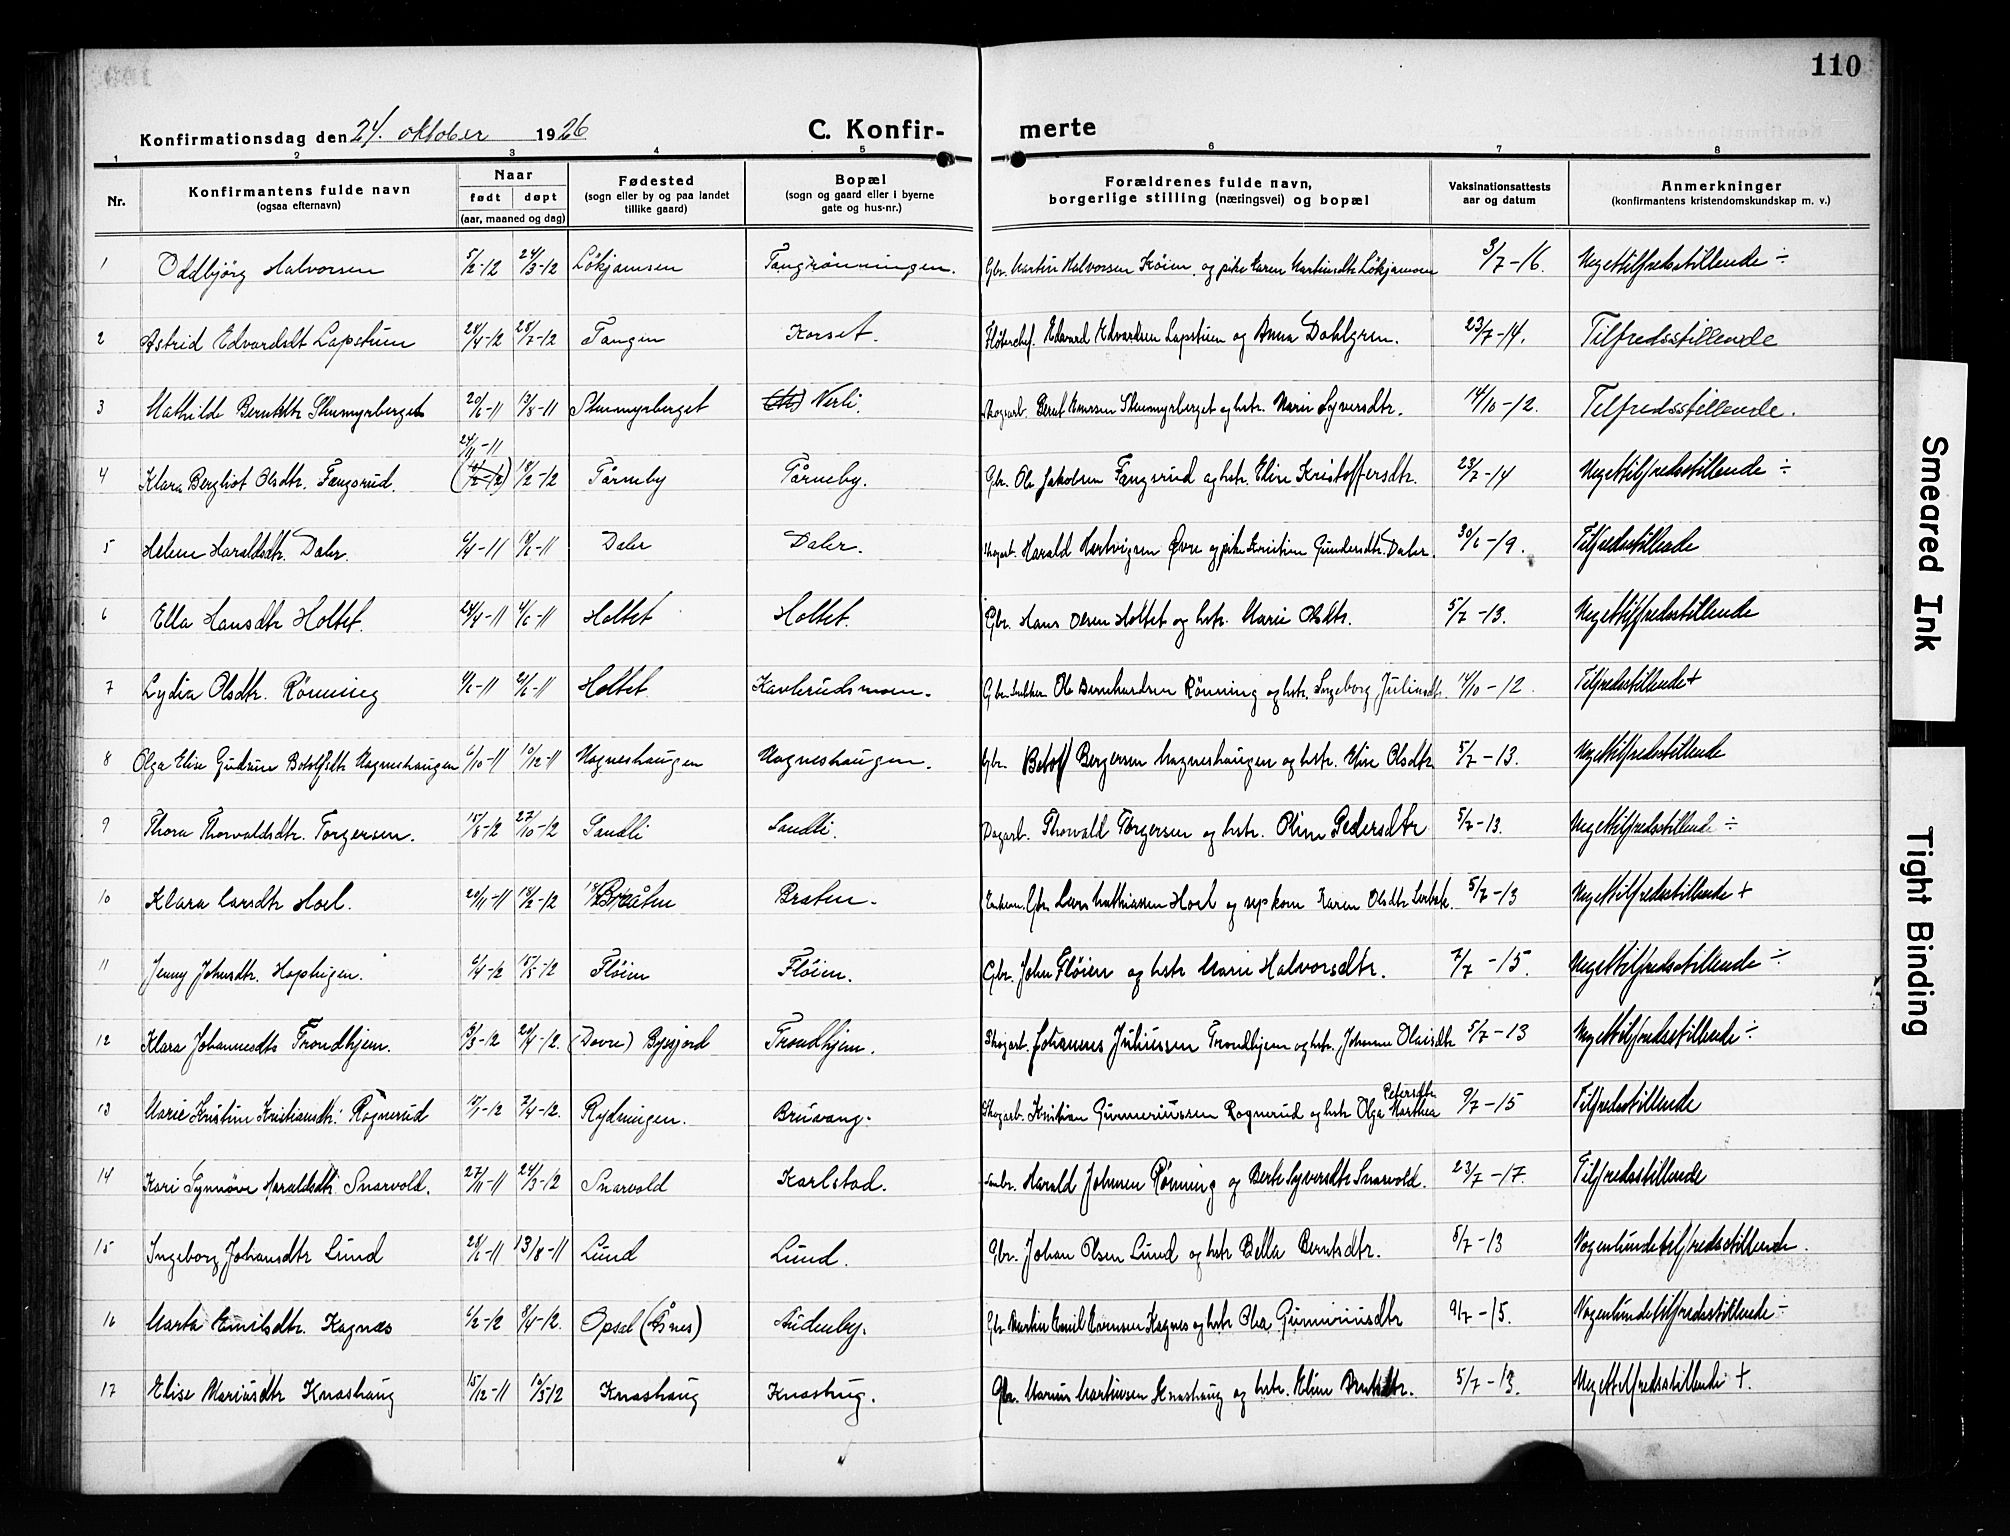 110
Konfirmationsdag den 24. oktober 1926
C. Konfir-
merte
1 2 3 4 5 6 7 8
Nr.
Konfirmantens fulde navn
(ogsaa efternavn)
Naar
født døpt
(aar, maaned og dag)
Fødested
(sogn eller by og paa landet
tillike gaard)
Bopæl
(sogn og gaard eller i byerne
gate og hus-nr.)
Forældrenes fulde navn,
borgerlige stilling (næringsvei) og bopæl
Vaksinationsattests
aar og datum
Anmerkninger
(konfirmantens kristendomskundskap m. v.)
1 Oddbjörg Halvorsen 5/2-12 24/3-12 Lökjamsen Tangrönningen. Gbr. Martin Halvorsen Köien, og pike Karen Martinsdtr Lökjamsen 3/7-16. Megettilfredsstillende ÷
2 Astrid Edvardsdt Lapstuen 28/4-12 28/7-12 Tangen Korset. Fløterchef. Edvard Edvardsen Lapstuen og Anna Dahlgren. 23/7-14. Tilfredsstillende
3 Mathilde Berntdtr Stenmyrberget 20/6-11 13/8-11 Stenmyrberget Verli. Skogarb. Bernt Stenmyrberget og hstr. Marie Syversdtr. 14/10-12. Tilfredsstillende.
24/11-11
4 Klara Bergliot Olsdtr. Fængsrud. 18/2-12 Tårneby Tårneby. Gbr. Ole Jakobsen Fængsrud og hstr. Eline Kristoffersdtr. 23/7-14 Megettilfredsstillende ÷
5 Helene Haraldsdtr. Daler. 6/4-11 18/6-11 Daler Daler. Skogarb. Harald Hertvigsen Øvre og pike Kristine Gundersdtr. Daler. 30/6-19. Tilfredsstillende
6 Ella Hansdtr Holtet. 24/4-11 4/6-11 Holtet Holtet. Gbr. Hans Olsen Holtet og hstr. Marie Olsdtr. 5/7-13. Megettilfredsstillende
7 Lydia Olsdtr. Rönning 4/6-11 Holtet Kavlerudsmoen. Gbr. Ole Bernhardsen Rönning og hstr. Ingeborg Juliusdt. 14/10-12. Tilfredsstillende +
8 Olga Elise Gudrun Botolfsdtr Magneshaugen 6/10-11 10/12-11 Magneshaugen Magneshaugen. Gbr. Botolf Bergersen Magneshaugen og hstr. Elise Olsdtr. 5/7-13. Megettilfredsstillende
9 Thora Thorvaldsdtr. Torgersen. 15/8-12 27/10-12 Sandli Sandli. Dagarb. Thorvald Torgersen og hstr. Oline Pedersdtr 5/7-13. Megettilfredsstillende ÷
10 Klara Larsdtr Hoel. 20/11-11 18/2-12 Bråten Braten. Gbr. Lars Mathiassen Hoel og Karen Olsdtr 5/7-13 Megettilfredsstillende +
11 Jenny Johnsdtr. Hophigen. 6/4-12 15/5-12 Flöien Flöien. Gbr. John Flöien og hstr Marie Halvorsdtr. 7/7-15. Megettilfredsstillende ÷
12 Klara Johannesdtr Trondhjem. 3/3-12 20/4-12. (Dovre) Byejord Trondhjem. Skogarb. Johannes Juliussen Trondhjem og hstr. Johanne Olaisdtr 5/7-13 Megettilfredsstillende ÷
Petersdtr
13 Marie Kristine Kristiansdtr. Rognerud 15/1-12 7/4-12. Rydningen. Bruvang. Skogarb. Kristian Gunneriussen Rognerud og hstr Olga Marthea 9/7-15 Tilfredsstillende
14 Kari Synnöve Haraldsdtr. Snarvold. 27/11-11 24/3-12 Snarvold Karlstad. Harald Johnsen Rönning og Berte Syversdtr Snarvold. 23/7-17. Tilfredsstillende
15 Ingeborg Johansdtr Lund 28/6-11 13/8-11 Lund Lund. Gbr. Johan Olsen Lund og hstr Bella Berntsdtr. 5/7-13 Nogenlundetilfredsstillende.
16 Marta Emilsdtr. Kagnæs 6/2-12 8/4-12. Opset (Åsnes) Audenby. Gbr Martin Emil Evensen Kagnes og hstr Olea Gunneriusdtr 9/7-15. Nogenlundetilfredsstillende ÷
17 Elise Mariusdtr Knashaug 15/12-11 10/3 12 Knashaug Knashug. Gbr. Marius Martinsen Knashaug og hstr. Eline Berntsdtr. 5/7-13. Megettilfredsstillende +.
Smeared Ink
Tight Binding